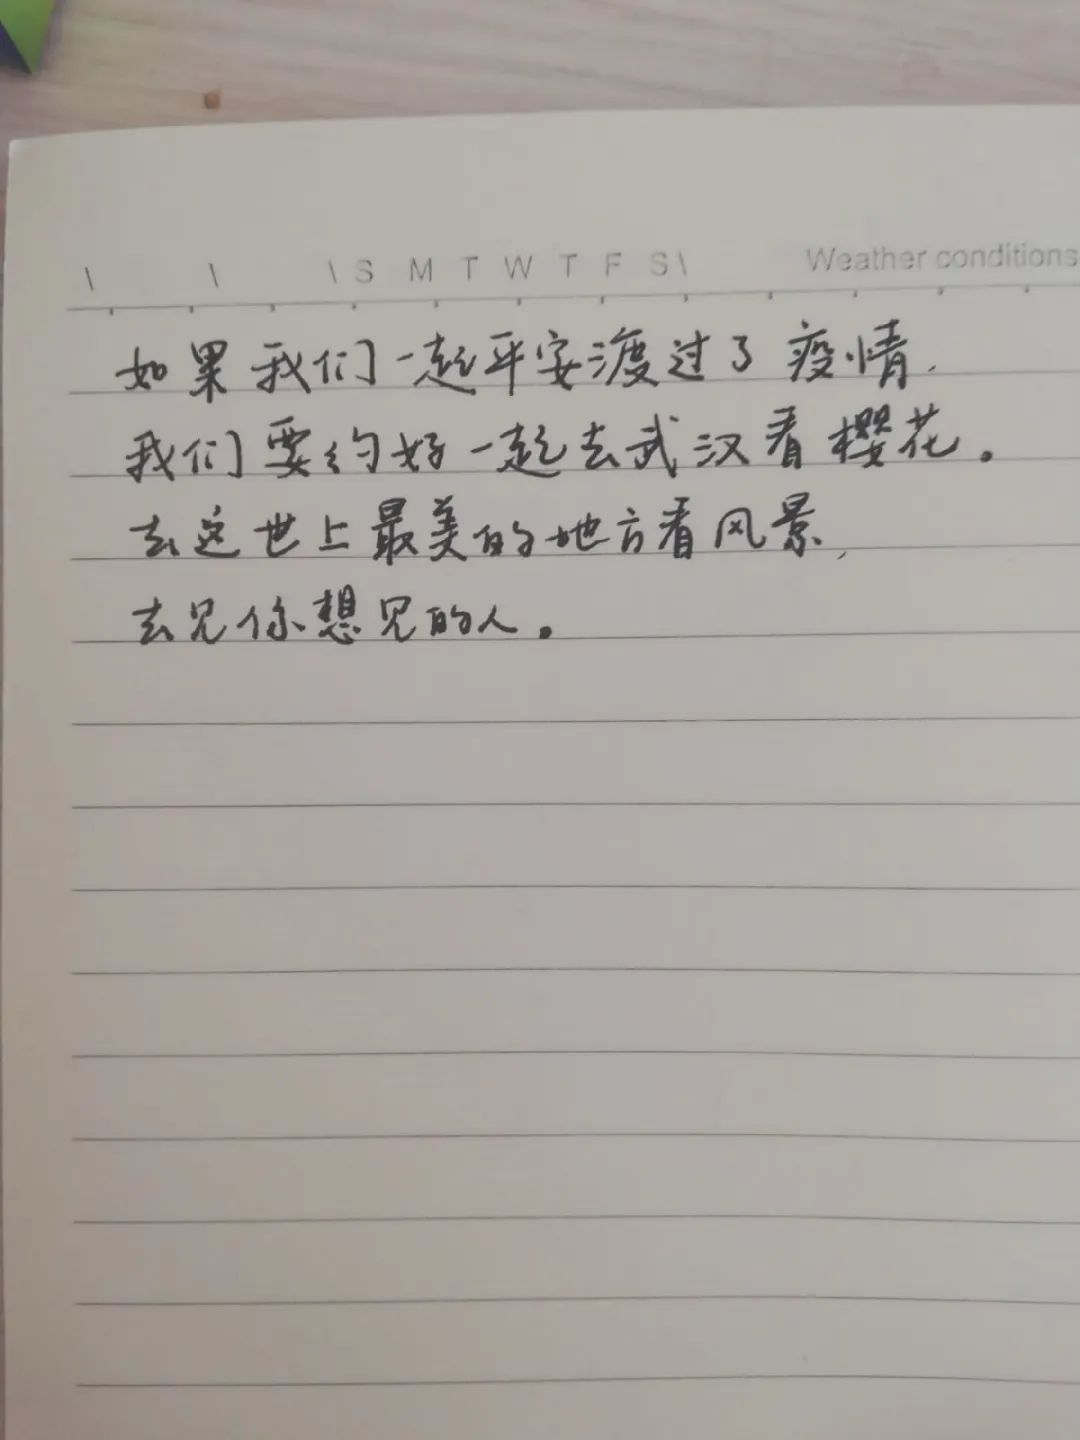 \ \ \ S M T W T F S \ Weather conditions
如果我们一起平安渡过了疫情,
我们要约好一起去武汉看樱花。
去这世上最美的地方看风景,
去见你想见的人。